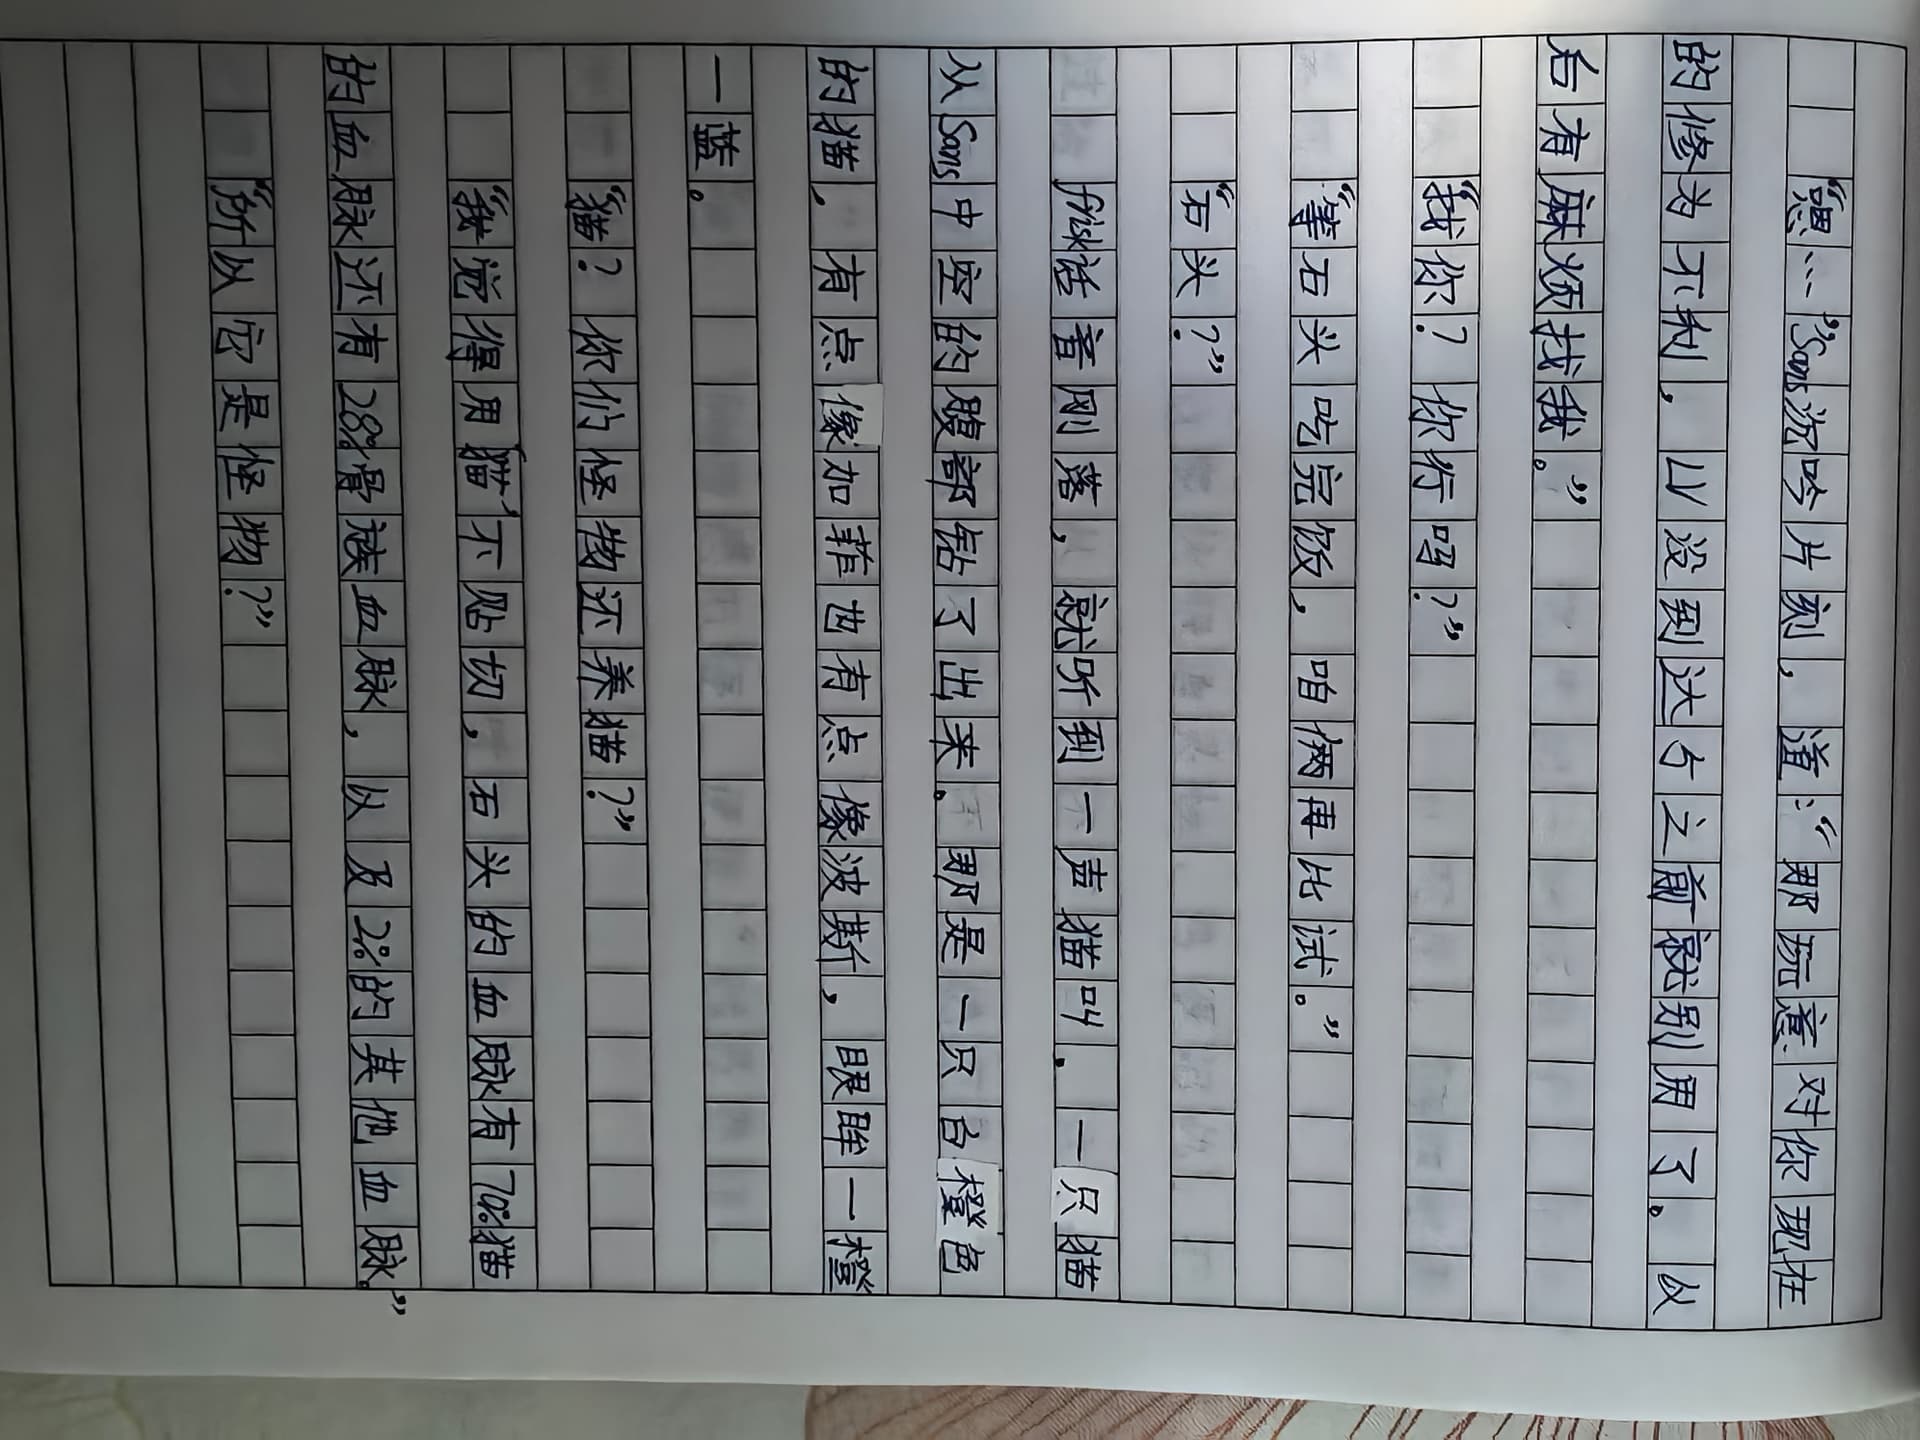 “嗯…”Sans沉吟片刻，道：“那玩意对你现在
的修为不利，LV没到达5之前就别用了。以
后有麻烦找我。”
“找你？你行吗？”
“等石头吃完饭，咱俩再比试。”
“石头？”
frisk话音刚落，就听到一声猫叫，一只猫
从Sans中空的腹部钻了出来。那是一只白橙色
的猫，有点像加菲也有点像波斯，眼眸一橙
一蓝。
“猫？你们怪物还养猫？”
“我觉得用‘猫’不贴切，石头的血脉有70%猫
的血脉还有28%骨族血脉，以及2%的其他血脉。”
“所以它是怪物？”